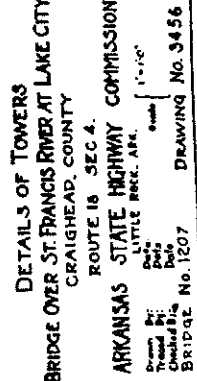 DETAILS OF TOWERS
BRIDGE OVER ST. FRANCIS RIVER AT LAKE CITY
CRAIGHEAD, COUNTY
ROUTE 18 SEC 4.
ARKANSAS STATE HIGHWAY COMMISSION
LITTLE ROCK, ARK.
Drawn By: Date
Traced By: Date
Checked By: Date
Scale 1"=1'-0"
BRIDGE No. 1207 DRAWING No. 3456